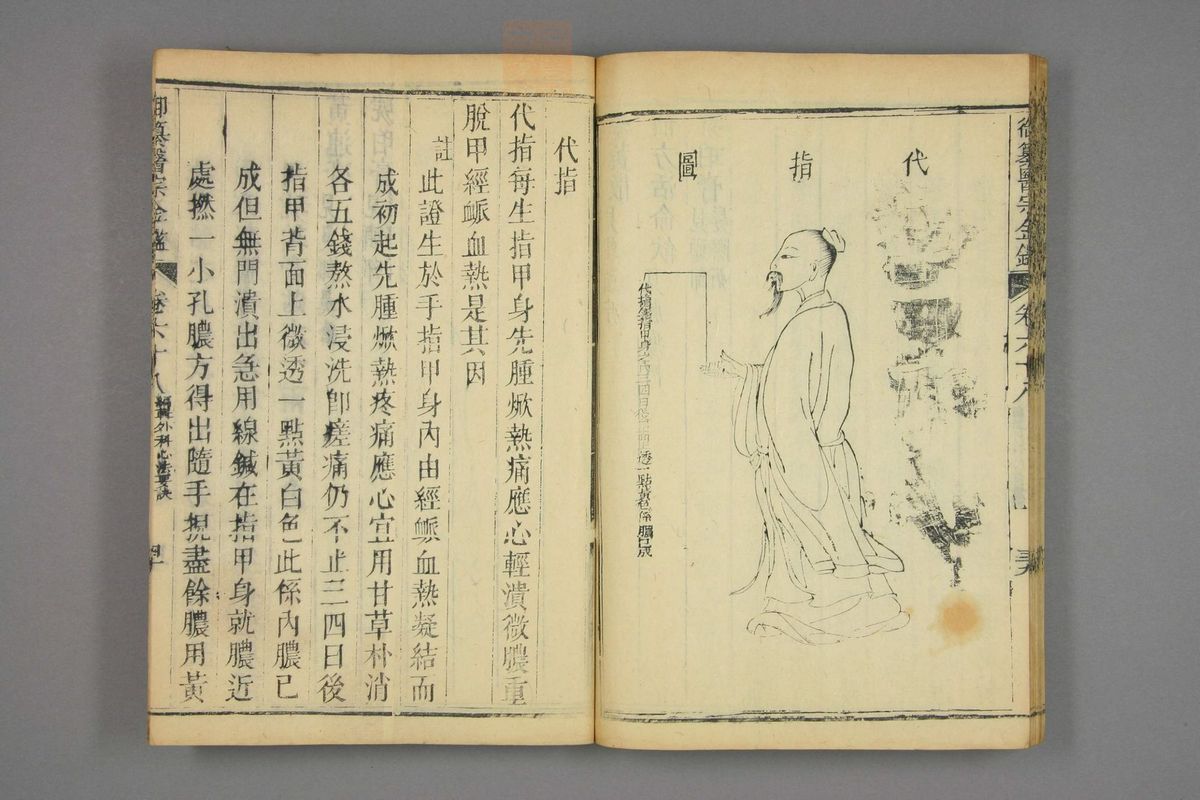 代指圖
代指生指甲身
點黃色係膿已成
御纂醫宗金鑑
卷六十八
代指
代指每生指甲身先腫焮熱痛應心輕潰微膿重
脫甲經脈血熱是其因
註此證生於手指甲身內由經脈血熱凝結而
成初起先腫焮熱疼痛應心宜用甘草朴消
各五錢熬水浸洗卽瘥痛仍不止三四日後
指甲背面上微透一點黃白色此係內膿已
成但無門潰出急用線鍼在指甲身就膿近
處撚一小孔膿方得出隨手捏盡餘膿用黃
御纂醫宗金鑑
卷六十八
編輯外科心法要訣